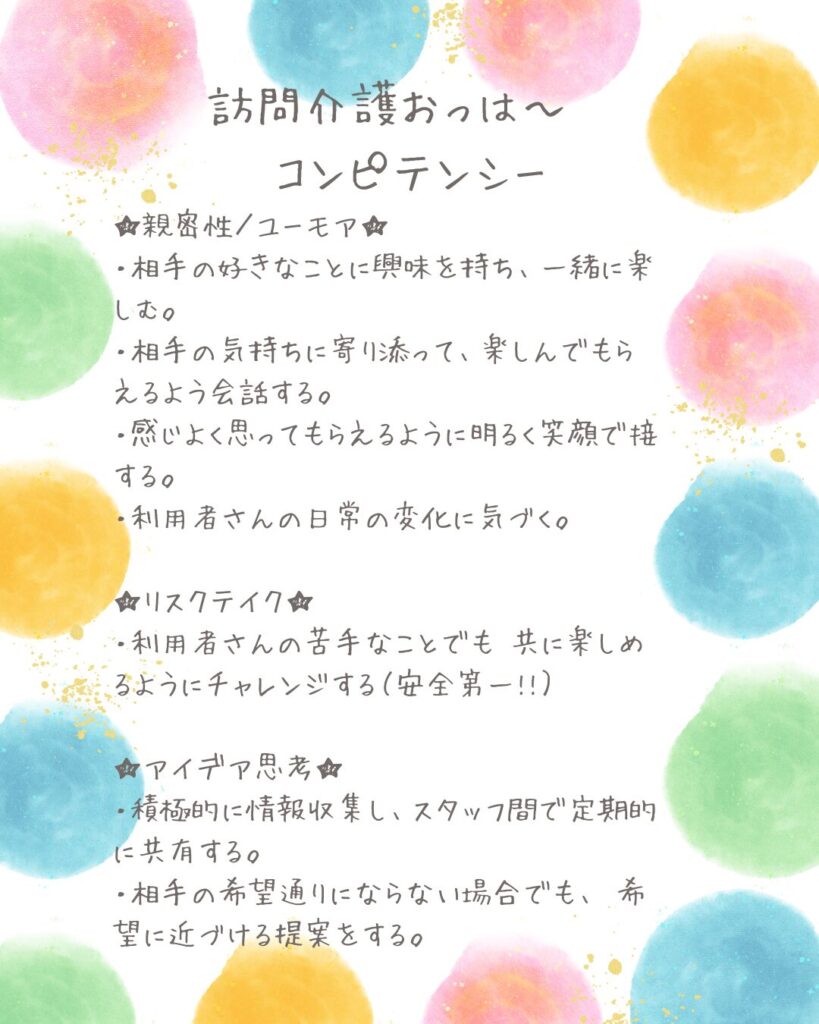 訪問介護おっは～
コンピテンシー
★親密性/ユーモア★
・相手の好きなことに興味を持ち、一緒に楽
しむ。
・相手の気持ちに寄り添って、楽しんでもら
えるよう会話する。
・感じよく思ってもらえるように明るく笑顔で接
する。
・利用者さんの日常の変化に気づく。
★リスクテイク★
・利用者さんの苦手なことでも 共に楽しめ
るようにチャレンジする(安全第一!!)
★アイデア思考★
・積極的に情報収集し、スタッフ間で定期的
に共有する。
・相手の希望通りにならない場合でも、 希
望に近づける提案をする。